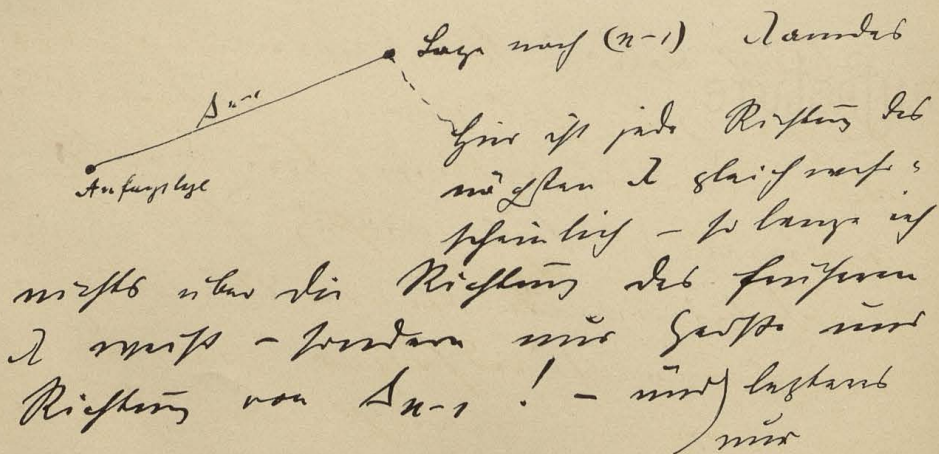 Lage nach (n-1) λamdas
Δn-1
Anfangslage
Hier ist jede Richtung des
nächsten λ gleich wahr=
scheinlich – so lange ich
nichts über die Richtung des früheren
λ weiß – sondern nur Größe und
Richtung von Δn-1 ! – und) letztens
nur